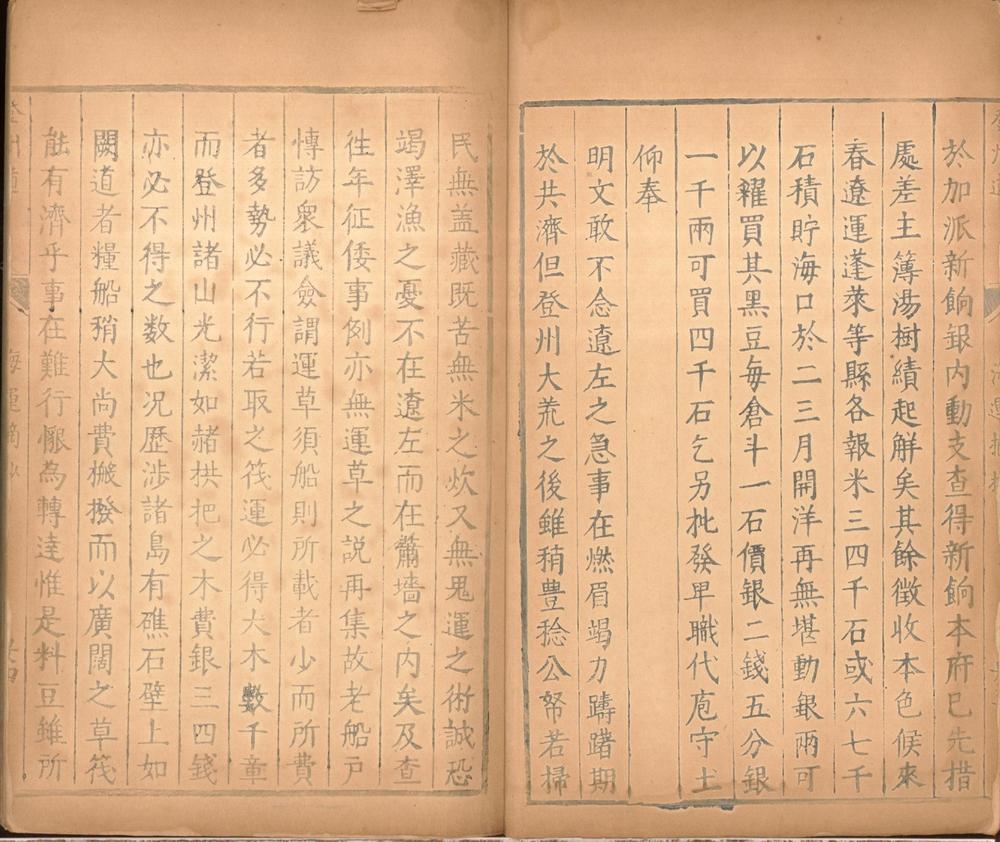 於加派新餉銀内動支查得新餉本府已先措
處差主簿湯樹績起解矣其餘徵收本色候來
春遼運蓬萊等縣各報米三四千石或六七千
石積貯海口於二三月開洋再無堪動銀兩可
以糴買其黑豆每倉斗一石價銀二錢五分銀
一千兩可買四千石乞另批發卑職代庖守土
仰奉
明文敢不念遼左之急事在燃眉竭力躊躇期
於共濟但登州大荒之後雖稍豊稔公帑若掃
民無盖藏既苦無米之炊又無鬼運之術誠恐
竭澤漁之憂不在遼左而在蕭墻之内矣及查
徃年征倭事例亦無運草之説再集故老船戸
慱訪衆議僉謂運草須船則所載者少而所費
者多勢必不行若取之筏運必得大木數千章
而登州諸山光潔如赭拱把之木費銀三四錢
亦必不得之数也况歷涉諸島有礁石壁上如
闕道者糧船稍大尚費搬撥而以廣闊之草筏
能有濟乎事在難行懨為轉達惟是料豆雖所
海運摘